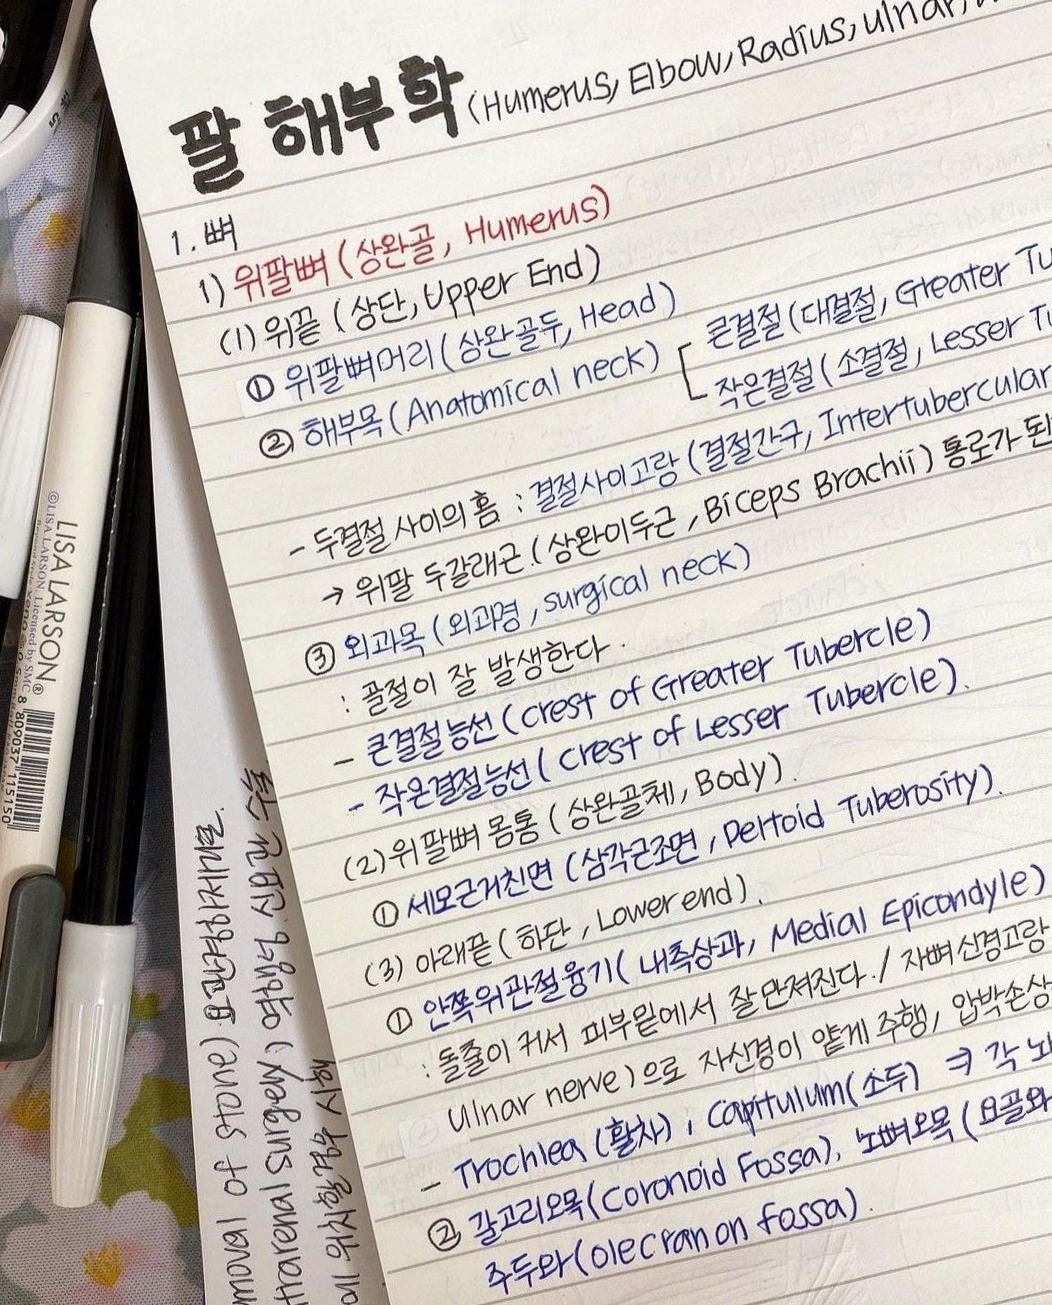 팔 해부학 (Humerus, Elbow, Radius, ulnar,
1. 뼈
1) 위팔뼈 (상완골, Humerus)
(1) 위끝 (상단, Upper End)
① 위팔뼈머리 (상완골두, Head)
② 해부목 (Anatomical neck)
큰결절 (대결절, Greater Tu
작은결절 (소결절, Lesser Tu
- 두결절 사이의 홈 : 결절사이고랑 (결절간구, Intertubercular
→ 위팔 두갈래근 (상완이두근, Biceps Brachii) 통로가 된
③ 외과목 (외과명, surgical neck)
: 골절이 잘 발생한다.
- 큰결절능선 (crest of Greater Tubercle)
- 작은결절능선 (crest of Lesser Tubercle).
(2) 위팔뼈 몸통 (상완골체, Body).
① 세모근거친면 (삼각근조면, Deltoid Tuberosity).
(3) 아래끝 (하단, Lower end).
① 안쪽위관절융기 (내측상과, Medial Epicondyle)
: 돌출이 커서 피부밑에서 잘만져진다. / 자뼈신경고랑
Ulnar nerve)으로 자신경이 얕게 주행, 압박손상
- Trochlea (활차), Capitulum (소두) ⇒ 각
② 갈고리오목 (Coronoid Fossa), 노뼈오목 (요골와
주두와 (olecranon fossa).
LISA LARSON®
©LISA LARSON Licensed by SMC
8 809037 115150
moval of stone) 요관경하제거
trarenal surgery) : 양와위
에 위치할경우 시행